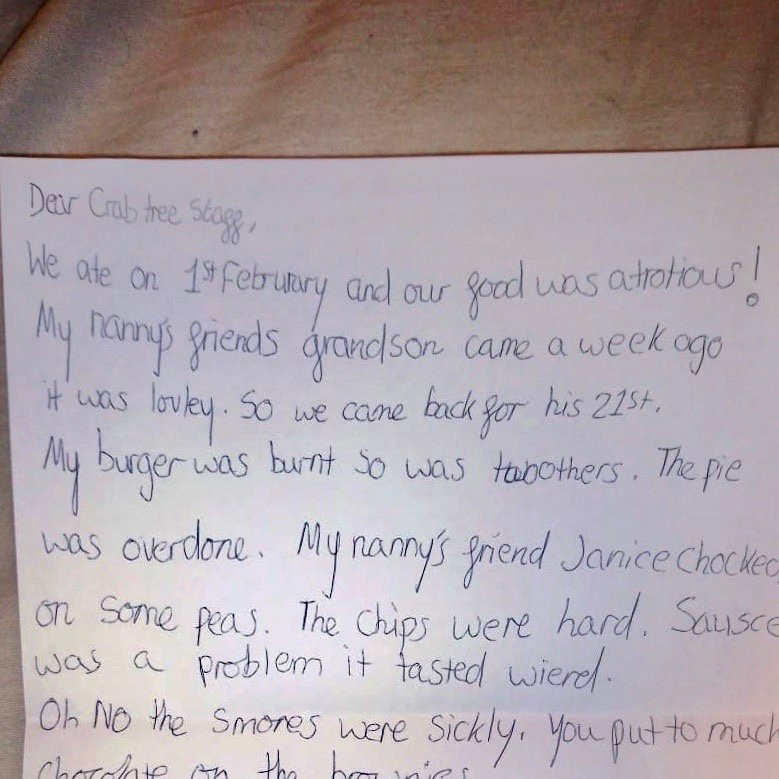 Dear Crabtree Stagg,
We ate on 1st Februrary and our food was atrotious!
My nanny's friends grandson came a week ago
it was lovley. So we came back for his 21st.
My burger was burnt so was others. The pie
was overdone. My nanny's friend Janice chocked
on some peas. The chips were hard. Sausce
was a problem it tasted wierd.
Oh No the smores were sickly. You put to much
chocolate on the brownies